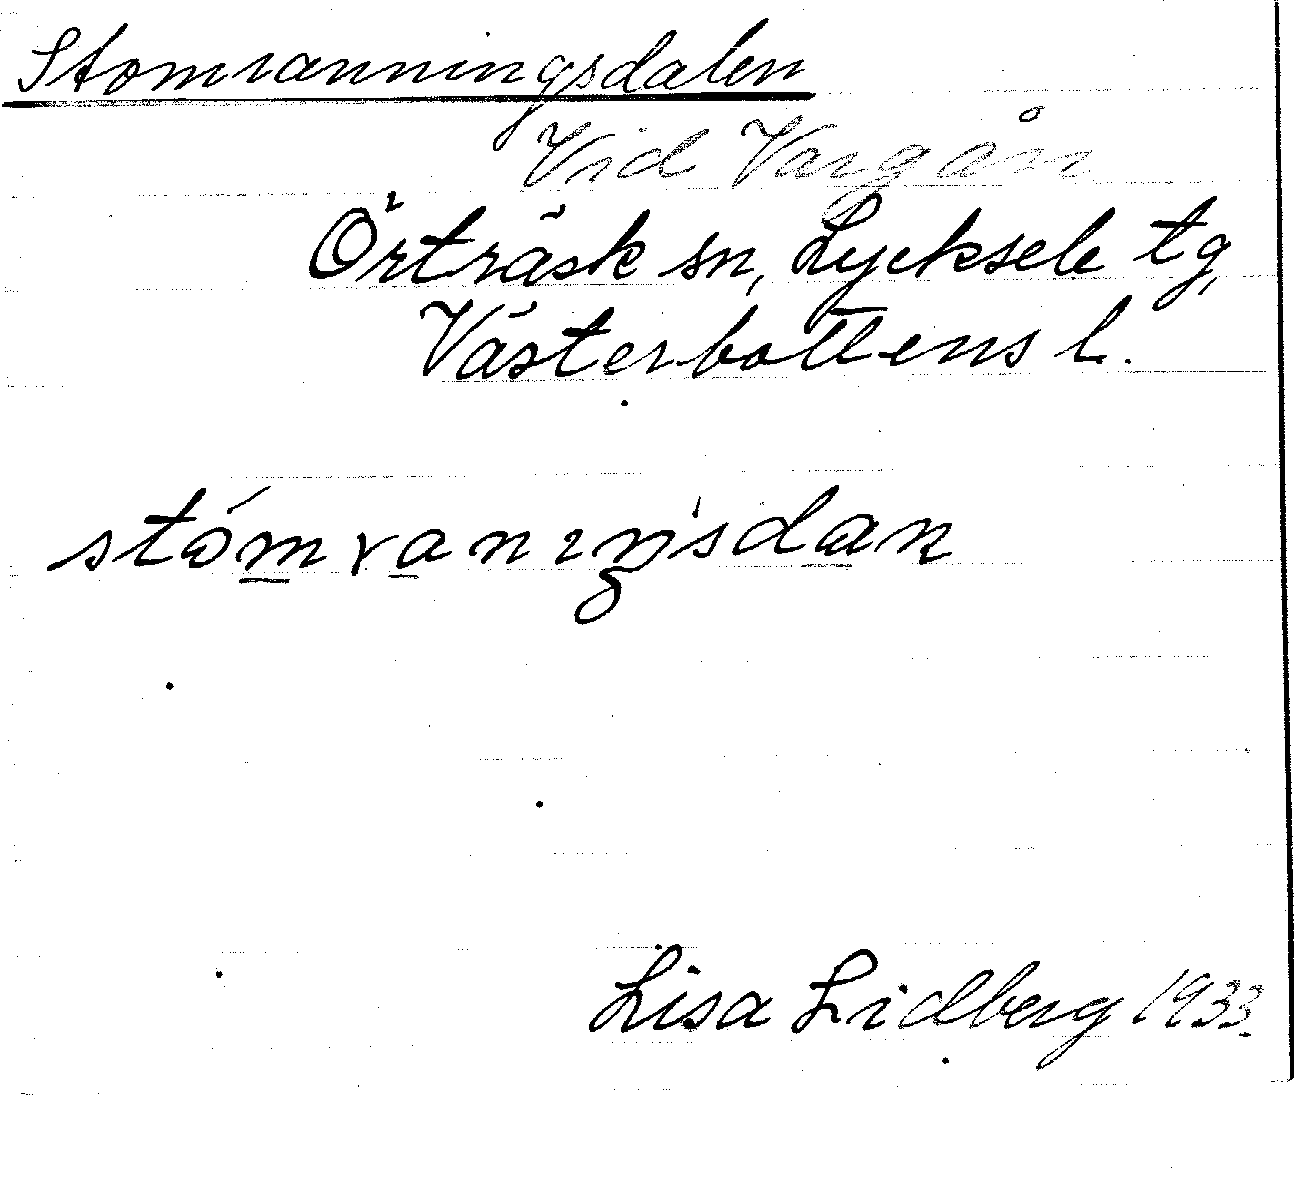 Stomranningsdalen
Vid Vargån
Örträsk sn, Lycksele tg,
Västerbottens l.
stómranıŋ'sdan
Lisa Lidberg 1933.